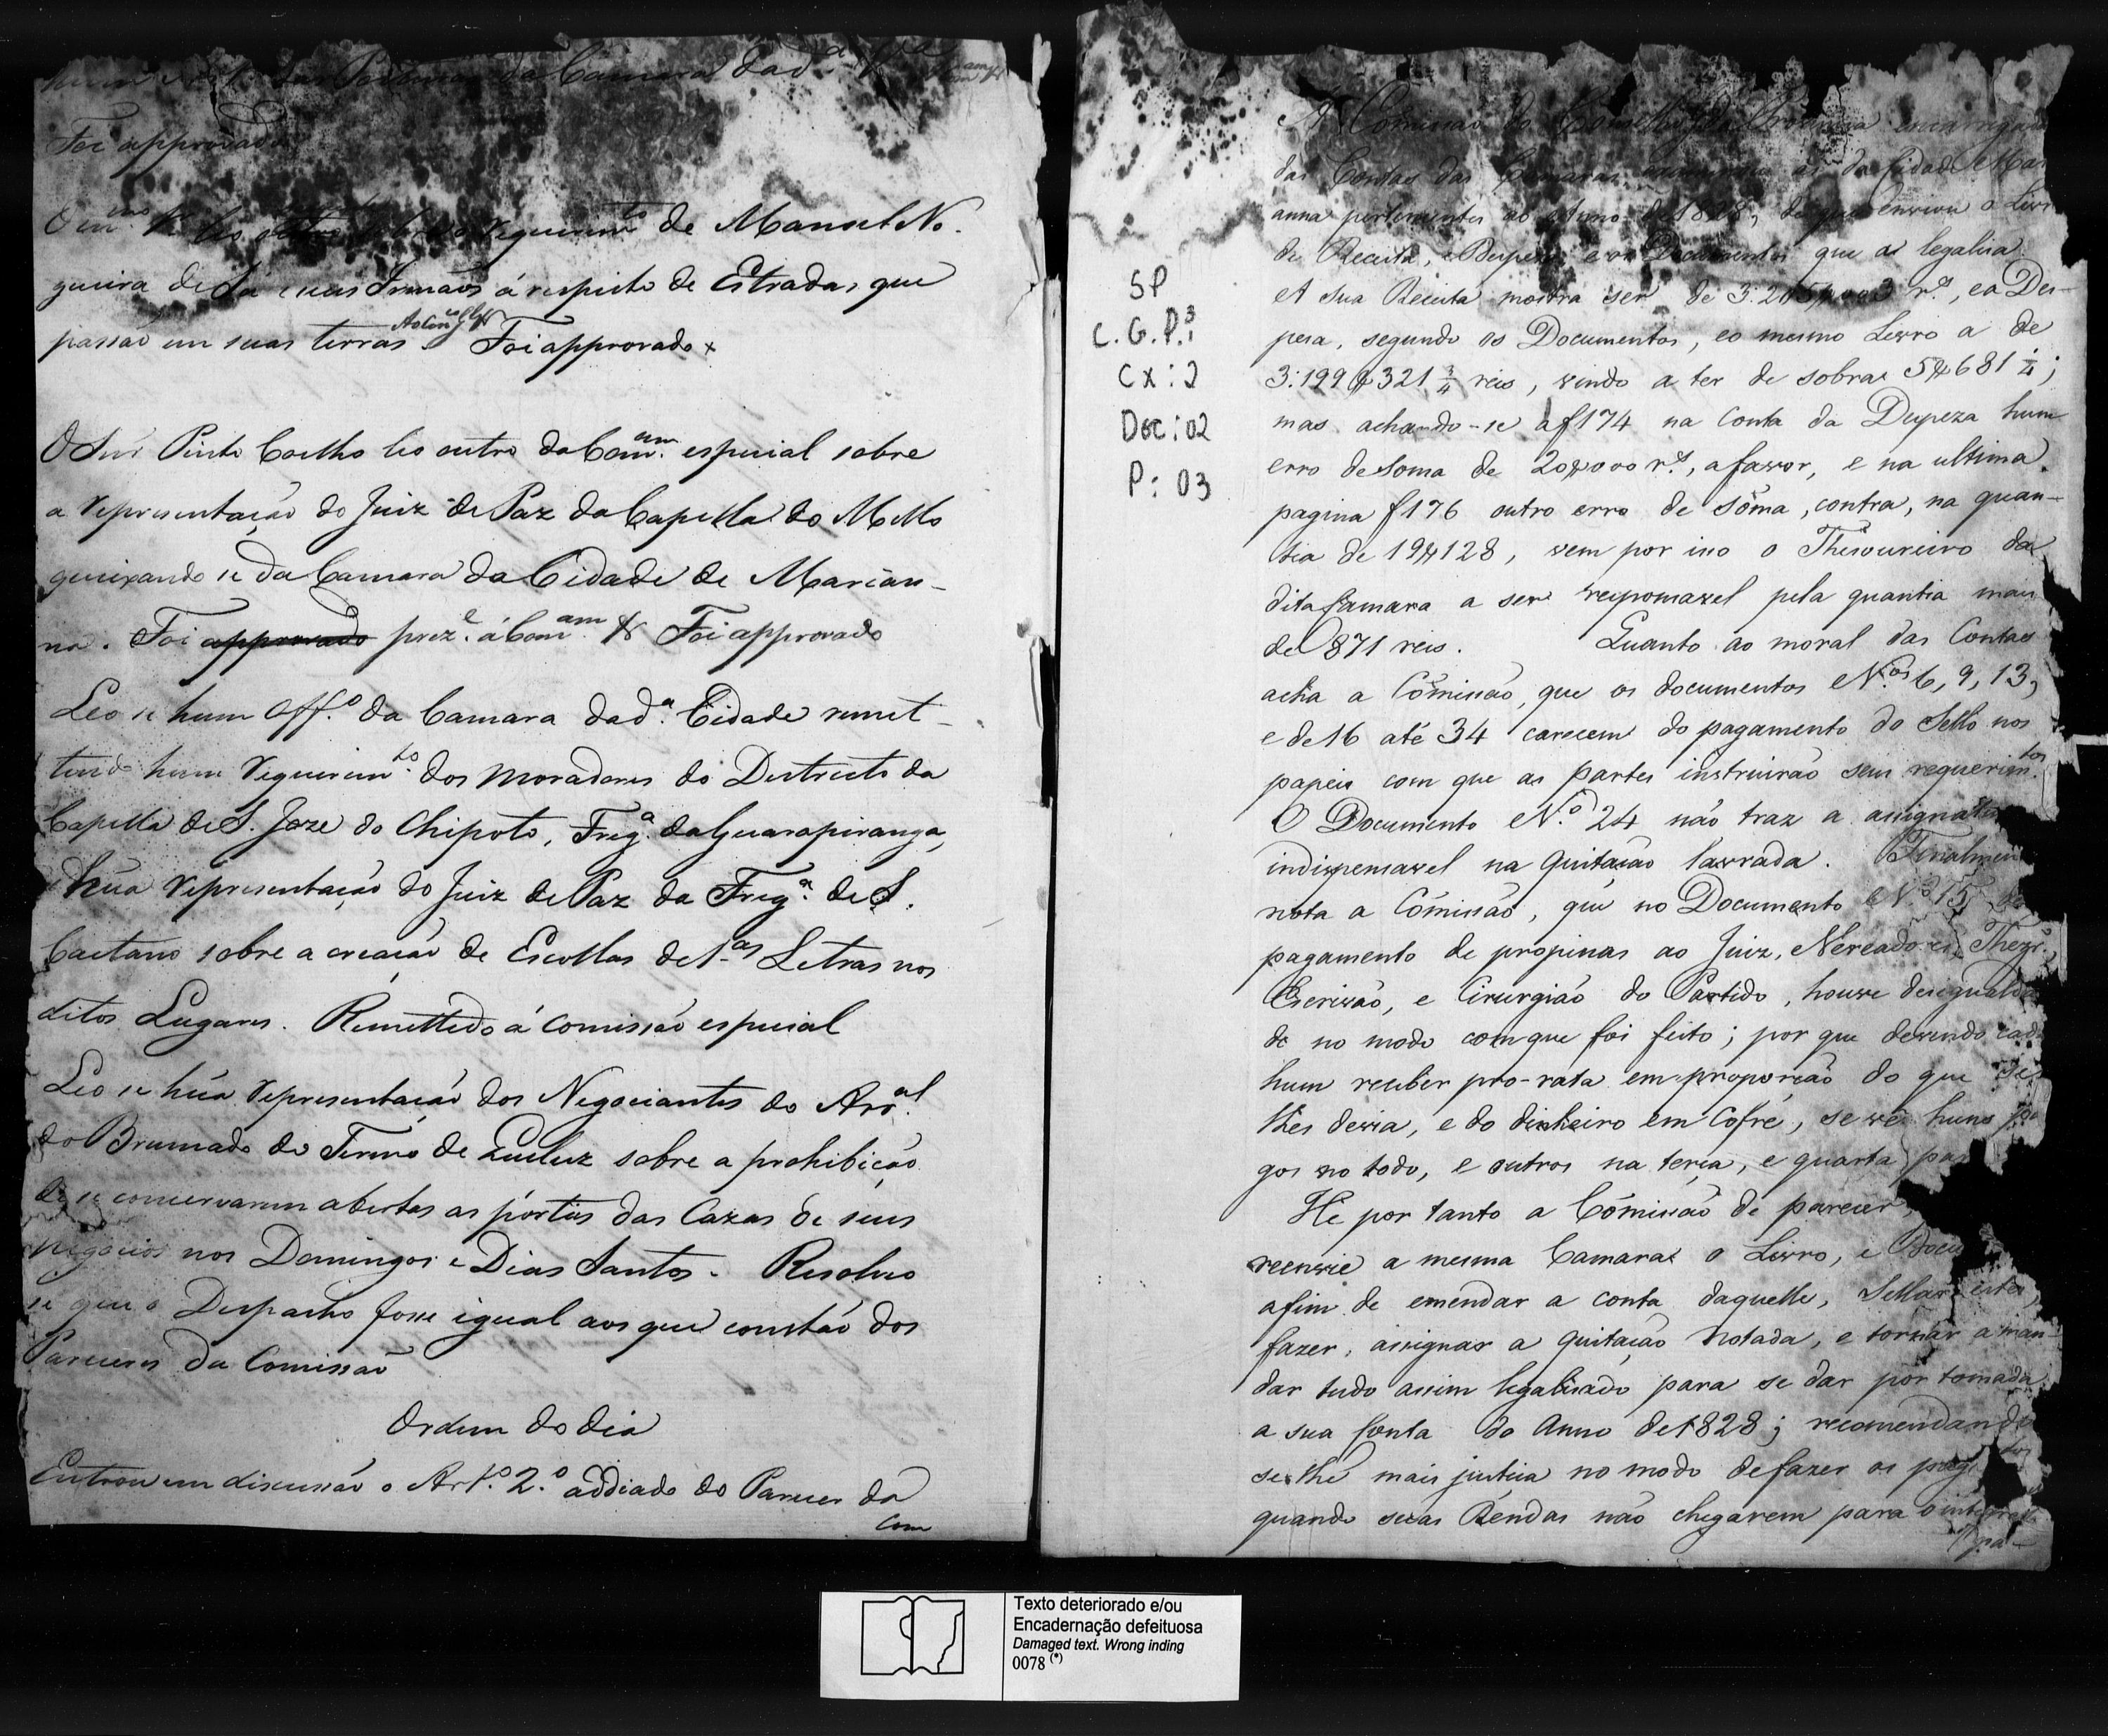 da Camara da d.ª
Foi approvado
O m.mo leo outro sobre o requerim.to de Manoel No-
gueira de Sá e seus Irmãos á respeito de Estradas, que
passão em suas terras. Foi approvado
O Snr Pinto Coelho leo outro da Com.am especial sobre
a representação do Juiz de Paz da Capella do Mello
queixando se da Camara da Cidade de Marian-
na. Foi approvado prez.e á Com.am & Foi approvado
Leo se hum Off.º da Camara da d.ª Cidade remet-
tendo hum requerim.to dos moradores do Destricto da
Capella de S. Joze do Chipoto, Freg.ª da Guarapiranga,
e hũa representação do Juiz de Paz da Freg.ª de S.
Caetano sobre a creação de Escollas de 1.as Letras nos
ditos Lugares. Remettido á Comissão especial
Leo se hũa representação dos Negociantes do Arr.al
do Brumado do Termo de Queluz sobre a prohibição
de se conservarem abertas as pórtas das Cazas de seus
negocios nos Domingos e Dias Santos. Resolveo
se que o Despacho fosse igual aos que constão dos
Pareceres da Comissão
Ordem do dia
Entrou em discussão o Art.º 2.º addiado do Parecer da
Com
SP
C.G.P.³:
Cx: 2
Doc: 02
P: 03
A Comissão do Conselho da Provincia encarregada
das Contas das Camaras as da Cidade Mari
anna pertencentes ao Anno de 1828, de que enviou o Livro
de Receita, e Despeza e os Documentos que a legalisa.
A sua Receita mostra ser de 3:205$003 r.s, e a Des-
peza, segundo os Documentos, e o mesmo Livro a de
3:199$321 3/4 reis, vindo a ter de sobras 5$681 1/4;
mas achando-se a f 174 na Conta da Despeza hum
erro de Soma de 20$000 r.s, a favor, e na ultima
pagina f 176 outro erro de sõma, contra, na quan-
tia de 19$128, vem por isso o Thesoureiro da
dita Camara a ser responsavel pela quantia mais
de 871 reis. Quanto ao moral das Contas
acha a Cõmissão, que os documentos N.os 6, 9, 13,
e de 16 até 34 carecem do pagamento do Sello nos
papeis com que as partes instruirão seus requerim.tos
O Documento N.º 24 não traz a assignatura
indispensavel na quitação lavrada. Finalmente
nota a Cõmissão, que no Documento N.º 15
pagamento de propinas ao Juiz, Vereadores, Thezr.º,
Escrivão, e Cirurgião do Partido, houve desigualda
de no modo com que foi feito; por que devendo cada
hum receber pro-rata em proporção do que se
lhes devia, e do dinheiro em Cofre, se vê huns pa
gos no todo, e outros na terça, e quarta par
He por tanto a Cõmissão de parecer
reenvie a mesma Camara o Livro, e Docu
afim de emendar a conta daquelle, Sellar estes,
fazer assignar a quitação notada, e tornar a man-
dar tudo assim legalisado para se dar por tomada
a sua Conta do Anno de 1828; recomendando
se lhe mais justiça no modo de fazer os pag.tos
quando suas Rendas não chegarem para o inteiro
pa-
Texto deteriorado e/ou
Encadernação defeituosa
Damaged text. Wrong inding
0078 (*)